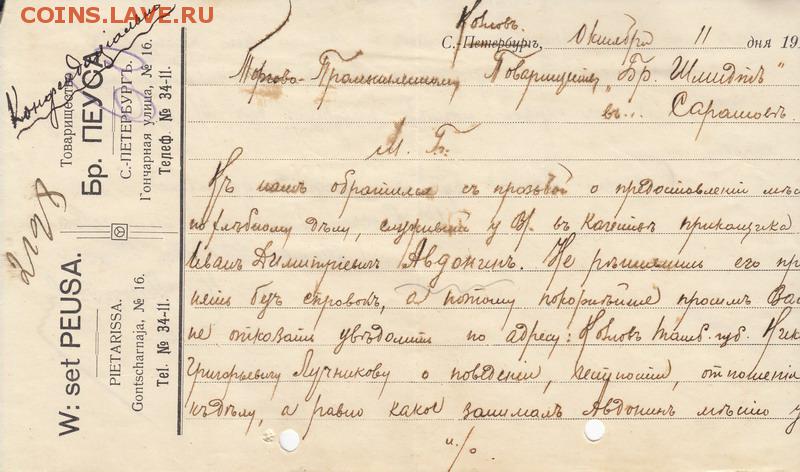 COINS.LAVE.RU
Конфиденциально
Товарищество
Бр. ПЕУСА.
С.-ПЕТЕРБУРГЪ.
Гончарная улица, № 16.
Телеф. № 34-11.
W: set PEUSA.
PIETARISSA.
Gontscharnaja, № 16.
Tel. № 34-11.
Козловъ.
С.-Петербургъ, Октября 11 дня 19
Торгово-Промышленному Товариществу „Бр. Шмидтъ"
въ Саратовъ.
М. Г.
Къ намъ обратился съ прозьбой о предоставленіи мѣс
по хлѣбному дѣлу, служившій у В. въ качествѣ прикащика
Иванъ Димитріевичъ Авдонинъ. Не рѣшились его пр
нять безъ справокъ, а потому покорнѣйше просимъ Вас
не отказать увѣдомить по адресу: Козловъ Тамб. губ. Ник
Григорьевичу Лучникову о поведеніи, честности, отношеніи
къ дѣлу, а равно какое занималъ Авдонинъ мѣсто у